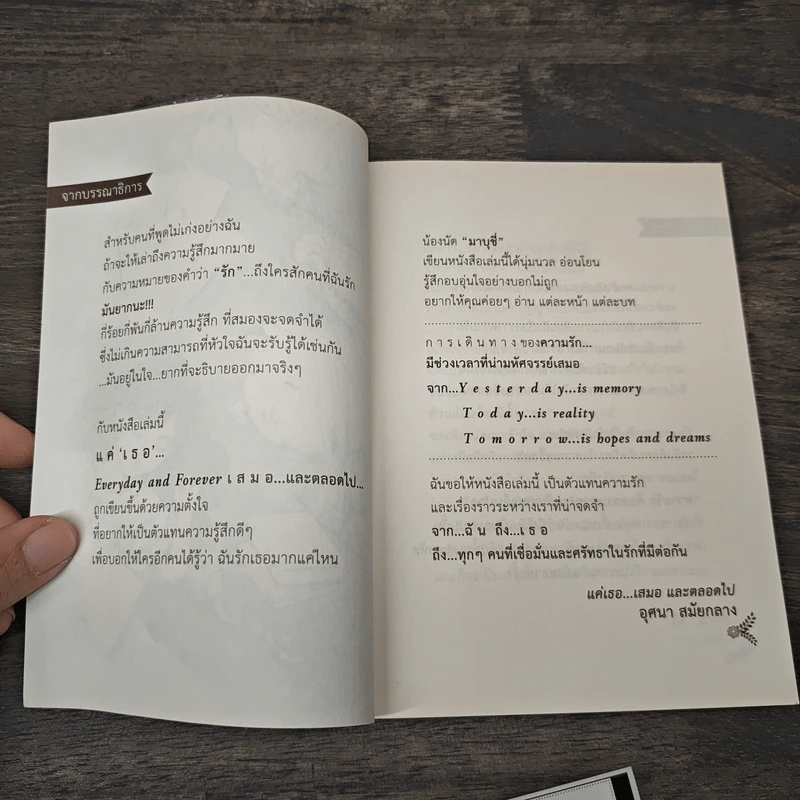 จากบรรณาธิการ
สำหรับคนที่พูดไม่เก่งอย่างฉัน
ถ้าจะให้เล่าถึงความรู้สึกมากมาย
กับความหมายของคำว่า “รัก”...ถึงใครสักคนที่ฉันรัก
มันยากนะ!!!
กี่ร้อยกี่พันกี่ล้านความรู้สึก ที่สมองจะจดจำได้
ซึ่งไม่เกินความสามารถที่หัวใจฉันจะรับรู้ได้เช่นกัน
...มันอยู่ในใจ...ยากที่จะอธิบายออกมาจริงๆ
กับหนังสือเล่มนี้
แค่ ‘เธอ’...
Everyday and Forever เสมอ...และตลอดไป...
ถูกเขียนขึ้นด้วยความตั้งใจ
ที่อยากให้เป็นตัวแทนความรู้สึกดีๆ
เพื่อบอกให้ใครอีกคนได้รู้ว่า ฉันรักเธอมากแค่ไหน
น้องนัด “มาบุชี่”
เขียนหนังสือเล่มนี้ได้นุ่มนวล อ่อนโยน
รู้สึกอบอุ่นใจอย่างบอกไม่ถูก
อยากให้คุณค่อยๆ อ่าน แต่ละหน้า แต่ละบท
การเดินทางของความรัก...
มีช่วงเวลาที่น่ามหัศจรรย์เสมอ
จาก...Yesterday...is memory
Today...is reality
Tomorrow...is hopes and dreams
ฉันขอให้หนังสือเล่มนี้ เป็นตัวแทนความรัก
และเรื่องราวระหว่างเราที่น่าจดจำ
จาก...ฉัน ถึง...เธอ
ถึง...ทุกๆ คนที่เชื่อมั่นและศรัทธาในรักที่มีต่อกัน
แค่เธอ...เสมอ และตลอดไป
อุศนา สมัยกลาง